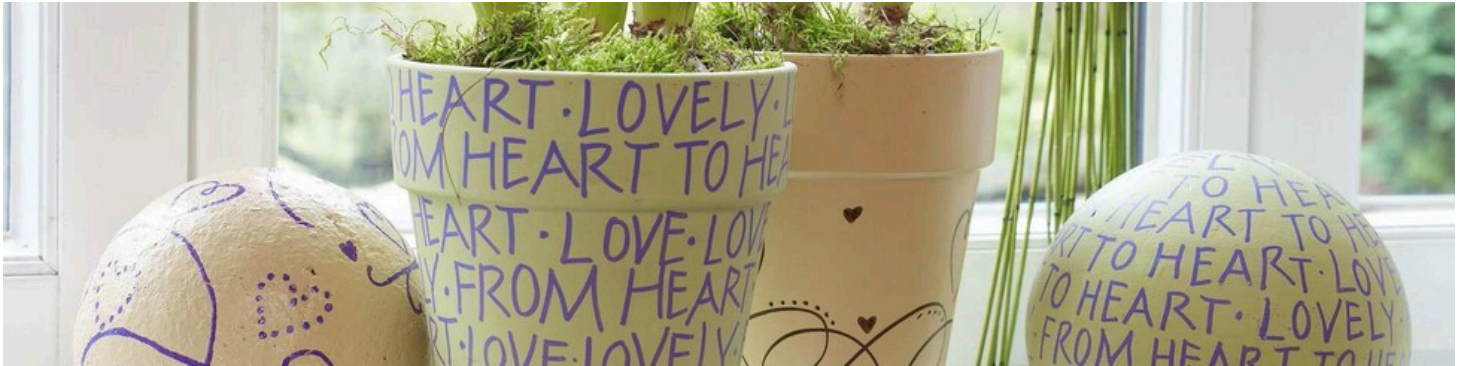 HEART · LOVELY ·
FROM HEART TO HEA
HEART · LOVE · LOV
Y · FROM HEART
RT · LOVE · LOVELY ·
ELY
TO HEA
HEART TO HE
RT TO HEART · LOVE
TO HEART · LOVELY ·
FROM HEART TO HE